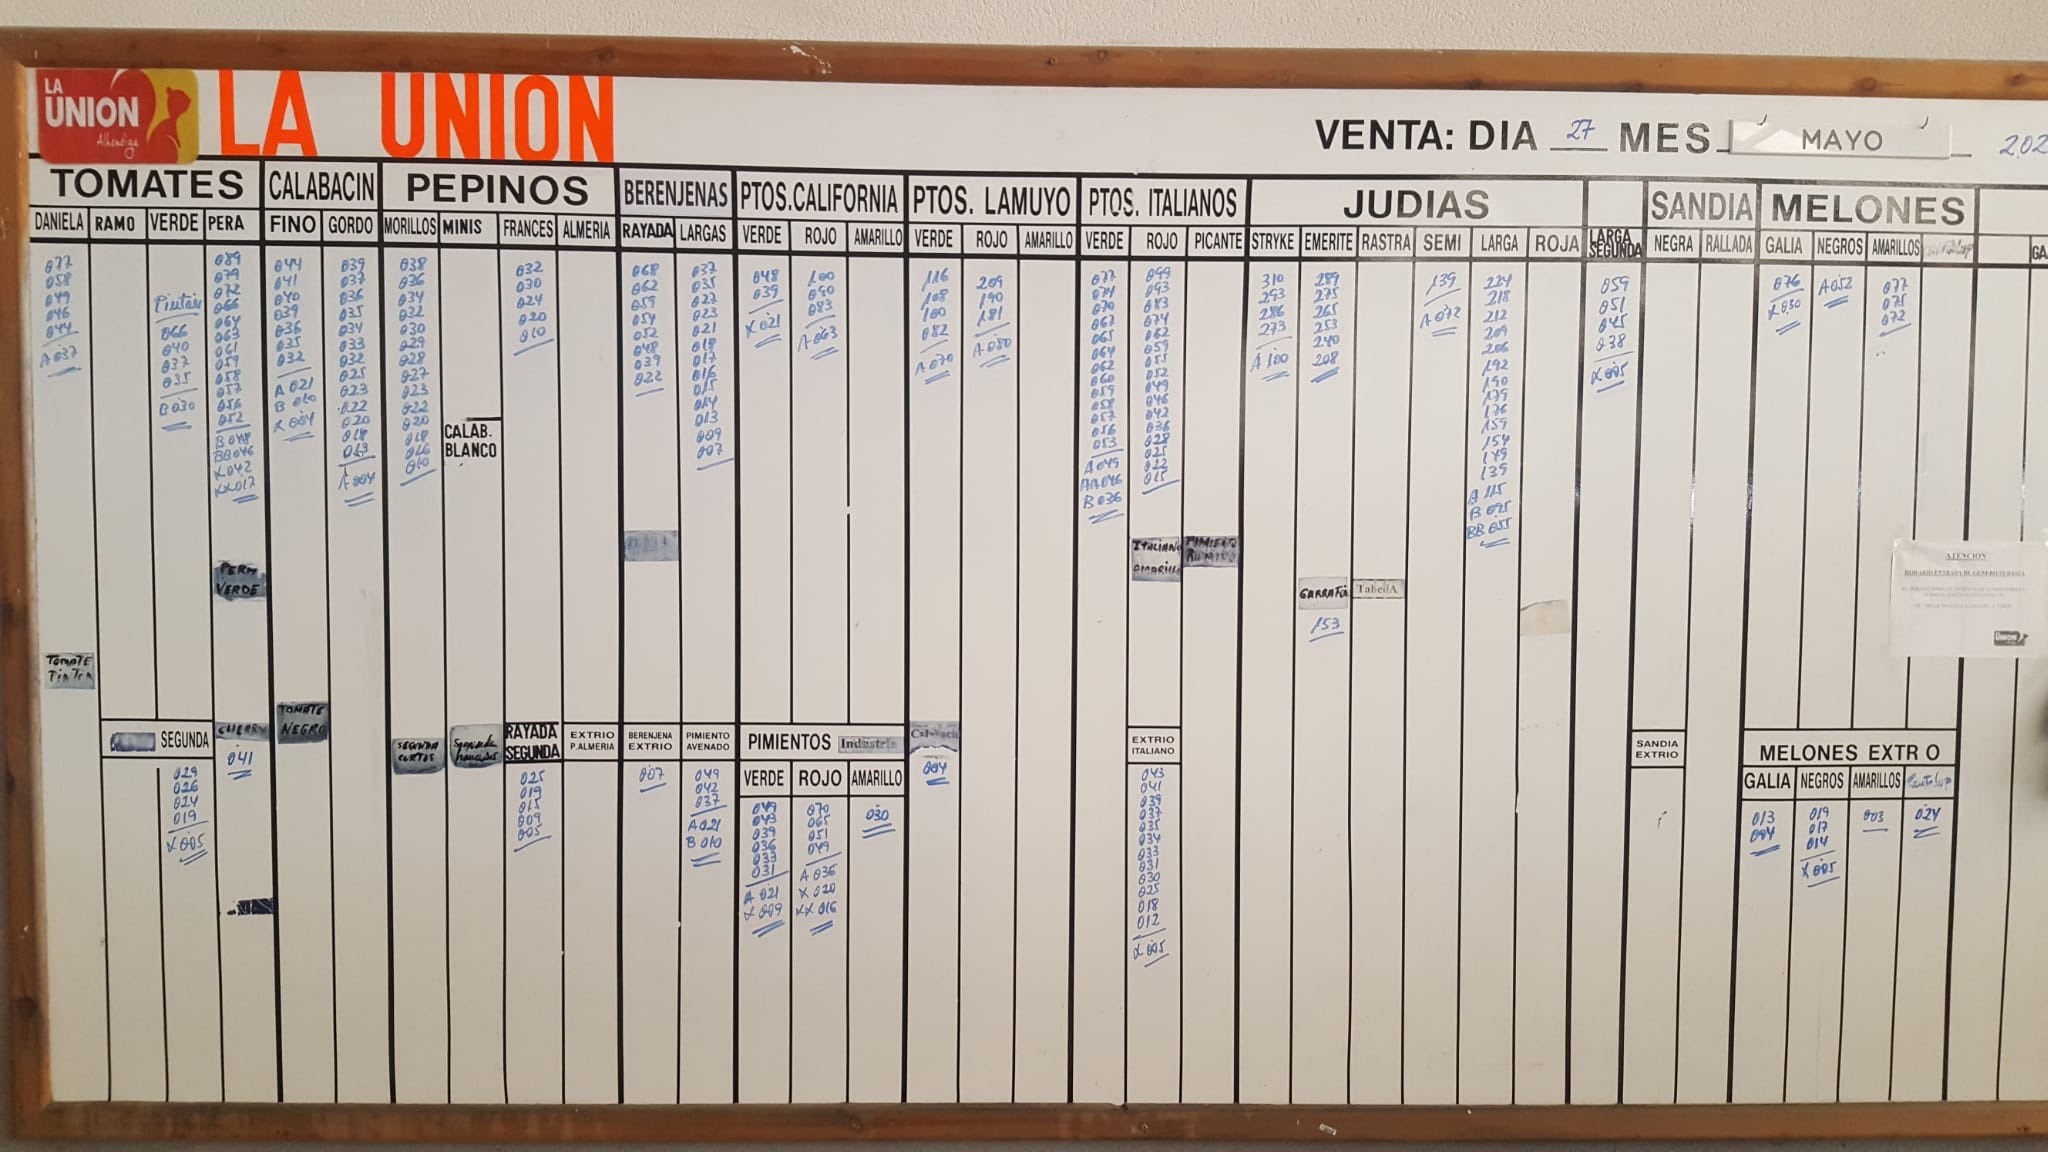 LA
UNION
Alhóndiga
LA UNION
VENTA: DIA 27 MES MAYO
TOMATES
DANELA RAMO VERDE PERA
077
058
049
046
044
A 037
066
040
037
035
B 030
089
079
072
066
064
063
061
059
058
057
056
052
B 048
BB 046
X 042
XX 017
PERA
VERDE
TOMATE
PINTON
SEGUNDA
029
026
024
019
X 005
CHERRY
041
CALABACIN
FINO GORDO
044
041
040
039
036
035
032
A 021
B 010
X 004
039
037
036
035
034
033
032
025
023
022
020
018
013
A 004
TOMATE
NEGRO
PEPINOS
MORILLOS MINIS FRANCES ALMERIA
038
036
034
032
030
029
028
027
023
022
020
018
016
010
CALAB.
BLANCO
032
030
024
020
010
SEGUNDA
CORTOS
Segunda
franceses
RAYADA
SEGUNDA
025
019
015
009
005
EXTRIO
P.ALMERIA
BERENJENAS
RAYADA LARGAS
068
062
059
054
052
048
039
022
037
035
027
023
021
018
017
016
015
014
013
009
007
BERENJENA
EXTRIO
007
PIMIENTO
AVENADO
049
042
037
A 021
B 010
PTOS.CALIFORNIA
VERDE ROJO AMARILLO
048
039
X 021
100
090
083
A 063
PIMIENTOS Industria
VERDE ROJO AMARILLO
049
043
039
036
033
031
A 021
X 009
070
065
051
049
A 036
X 020
XX 016
030
PTOS. LAMUYO
VERDE ROJO AMARILLO
116
108
100
082
A 070
209
190
181
A 080
004
PTOS. ITALIANOS
VERDE ROJO PICANTE
077
074
070
067
065
064
062
060
059
058
057
056
053
A 049
AA 046
B 036
099
093
083
074
062
059
055
052
049
046
042
036
028
025
022
015
ITALIANO
AMARILLO
PIMIENTO
EXTRIO
ITALIANO
043
041
039
037
035
034
033
031
030
025
018
012
X 005
JUDIAS
STRYKE EMERITE RASTRA SEMI LARGA ROJA
310
293
286
273
A 100
289
275
265
253
240
208
GARRAFON
153
TabellA
139
A 072
224
218
212
209
206
192
190
179
176
159
154
149
139
A 115
B 095
BB 055
LARGA
SEGUNDA
059
051
045
038
X 005
SANDIA
NEGRA RALLADA
SANDIA
EXTRIO
MELONES
GALIA NEGROS AMARILLOS
076
X 030
A 052
077
075
072
MELONES EXTR O
GALIA NEGROS AMARILLOS
013
004
019
017
014
X 005
003
024
ATENCION
HORARIO ENTRADA DE GENERO SUBASTA
UNION